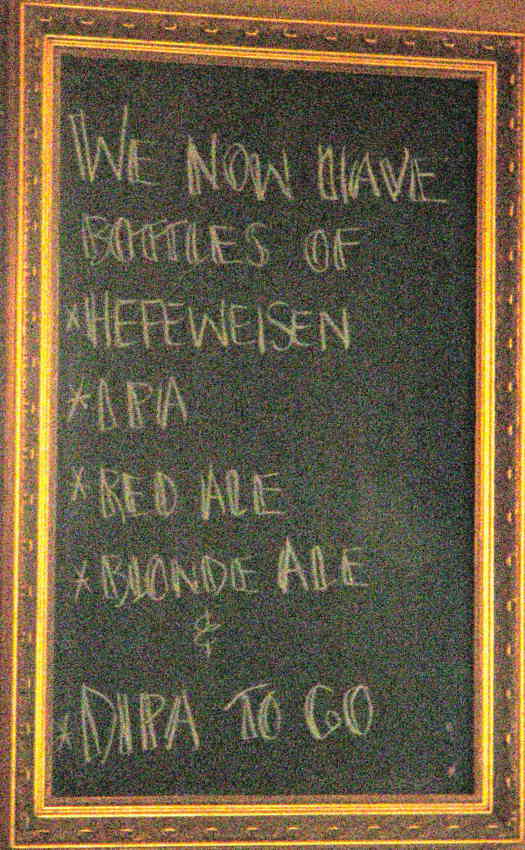 WE NOW HAVE
BOTTLES OF
*HEFEWEISEN
*IPA
*RED ALE
*BLONDE ALE
&
*DIPA TO GO